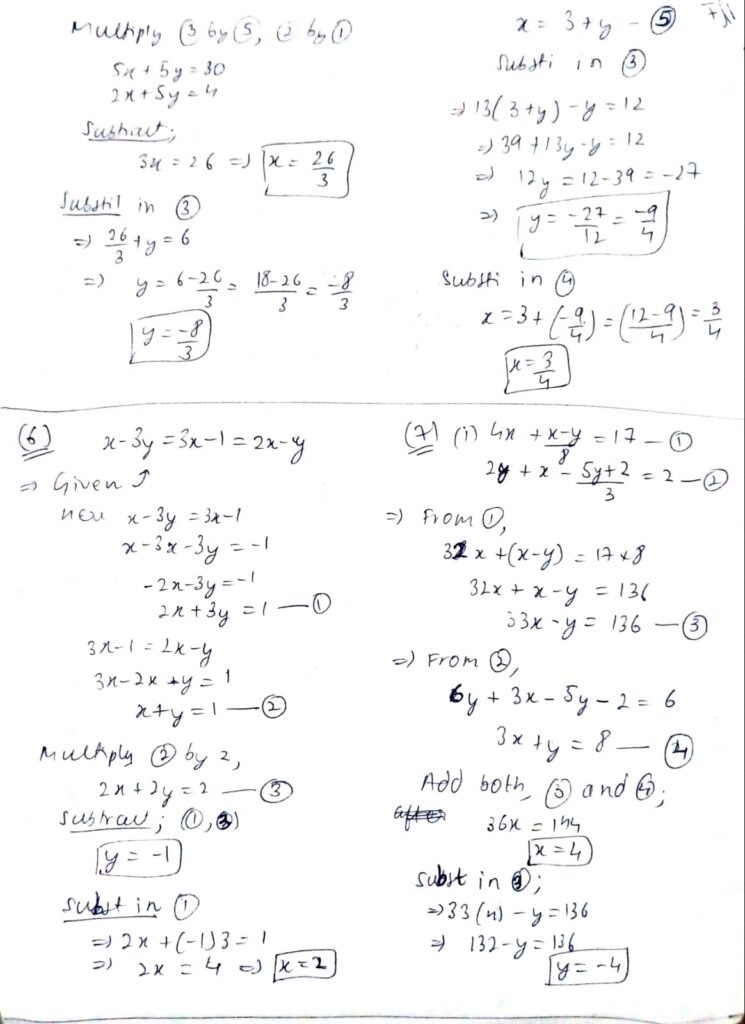 Multiply ③ by ⑤, ② by ①
5x + 5y = 30
2x + 5y = 4
Subtract;
3x = 26 => x = 26/3
Substil in ③
=> 26/3 + y = 6
=> y = 6 - 26/3 = 18-26/3 = -8/3
y = -8/3
x = 3+y - ⑤
Substi in ③
=> 13(3+y) - y = 12
=> 39 + 13y - y = 12
=> 12y = 12-39 = -27
=> y = -27/12 = -9/4
Substi in ④
x = 3 + (-9/4) = (12-9/4) = 3/4
x = 3/4
(6) x-3y = 3x-1 = 2x-y
=> Given ↑
x-3y = 3x-1
x-3x-3y = -1
-2x-3y = -1
2x+3y = 1 — ①
3x-1 = 2x-y
3x-2x+y = 1
x+y = 1 — ②
Multiply ② by 2,
2x+2y = 2 — ③
Subtract; (①,③)
y = -1
Subst in ①
=> 2x + (-1)3 = 1
=> 2x = 4 => x = 2
(7) (i) 4x + x-y/8 = 17 — ①
2y + x - 5y+2/3 = 2 — ②
=> From ①,
32x + (x-y) = 17×8
32x + x - y = 136
33x - y = 136 — ③
=> From ②,
6y + 3x - 5y - 2 = 6
3x + y = 8 — ④
Add both, ③ and ④;
36x = 144
x = 4
Subst in ③;
=> 33(4) - y = 136
=> 132 - y = 136
y = -4